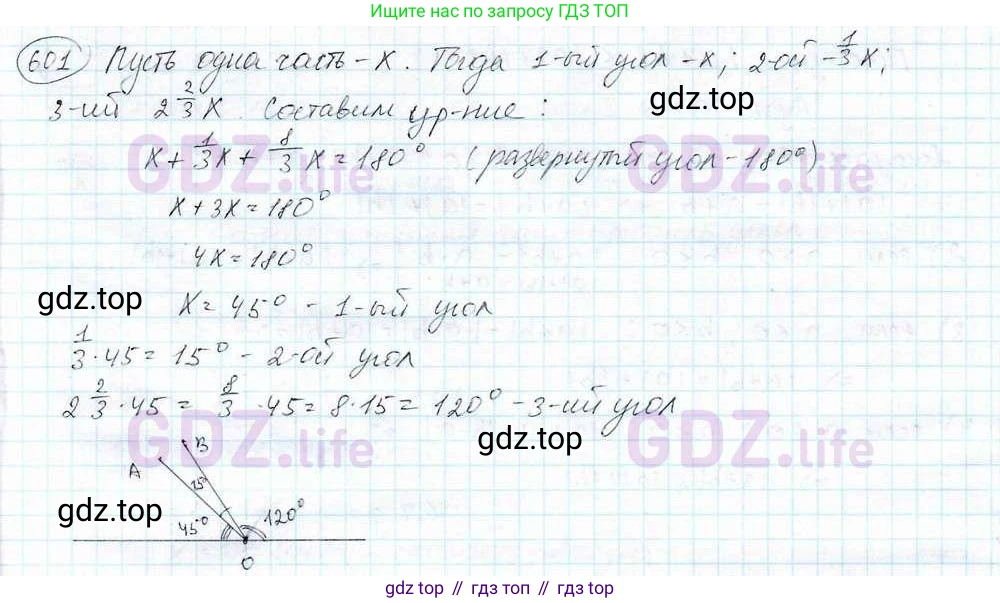 Ищите нас по запросу ГДЗ ТОП
601 Пусть одна часть - x. Тогда 1-ый угол - x; 2-ой - 1/3 x;
3-ий 2 2/3 x. Составим ур-ние:
gdz.top
x + 1/3 x + 8/3 x = 180° (развернутый угол - 180°)
GDZ.life GDZ.life
x + 3x = 180°
4x = 180°
gdz.top
x = 45° - 1-ый угол
gdz.top
1/3 · 45 = 15° - 2-ой угол
2 2/3 · 45 = 8/3 · 45 = 8 · 15 = 120° - 3-ий угол
GDZ.life GDZ.life
gdz.top
B
A
15°
gdz.top
45° 120°
O
gdz top // гдз топ // gdz.top